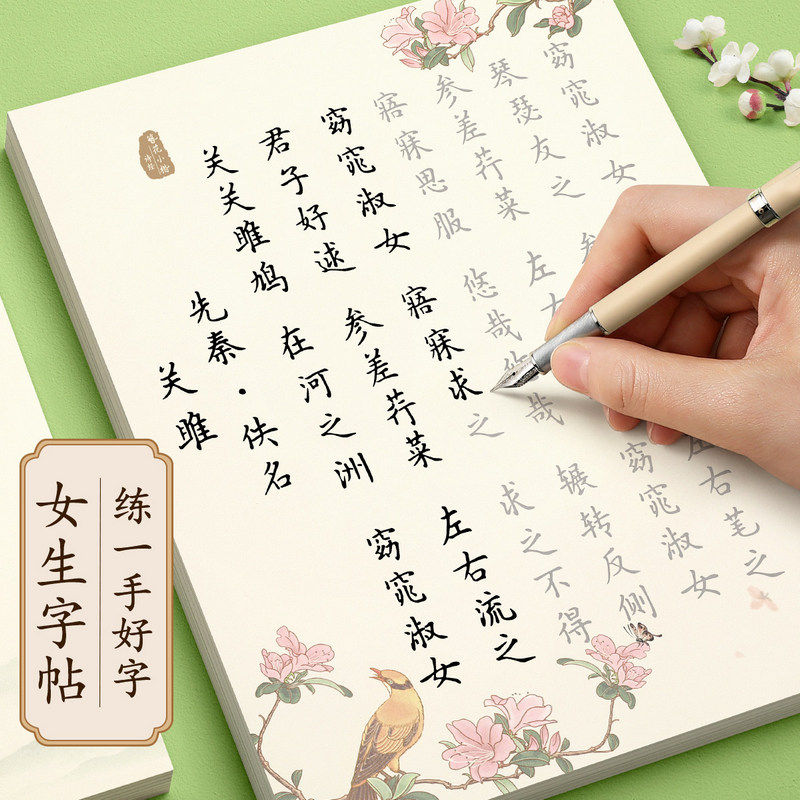 簪花小楷
诗经
关雎
先秦·佚名
关关雎鸠 在河之洲 窈窕淑女
君子好逑 参差荇菜 左右流之
窈窕淑女 寤寐求之 求之不得
寤寐思服 悠哉悠哉 辗转反侧
参差荇菜 左右 窈窕淑女
琴瑟友之 参 左右芼之
窈窕淑女
练一手好字
女生字帖